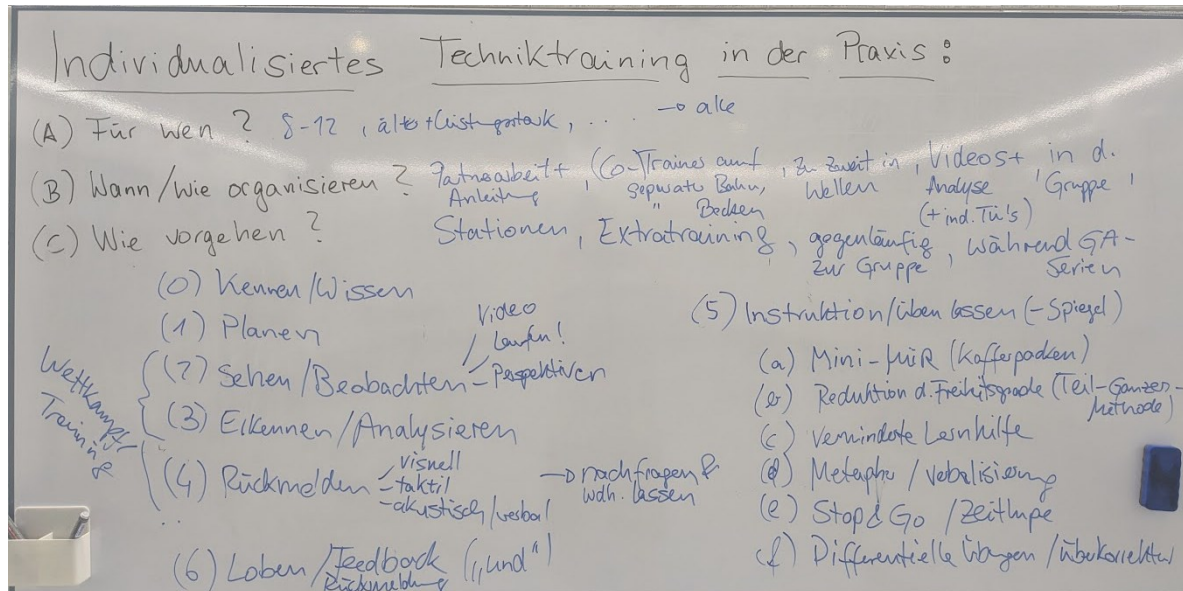 Individualisiertes Techniktraining in der Praxis:
(A) Für wen? 8-12, älter + leistungsstark, ... → alle
(B) Wann/Wie organisieren? Partnerarbeit + Anleitung, (Co-)Trainer auf separater Bahn, " Becken, zu zweit in Wellen, Videos + Analyse (+ ind. TÜ's), in d. Gruppe,
Stationen, Extratraining, gegenläufig zur Gruppe, während GA-Serien
(C) Wie vorgehen?
(0) Kennen/Wissen
(1) Planen
(2) Sehen/Beobachten - Video
Laufen!
Perspektiven
(3) Erkennen/Analysieren
Wettkampf
Training
(4) Rückmelden - visuell
- taktil
- akustisch/verbal
→ nachfragen & wdh. lassen
(6) Loben/Feedback („und")
Rückmeldung
(5) Instruktion/üben lassen (-Spiegel)
(a) Mini-MüR (Kofferpacken)
(b) Reduktion d. Freiheitsgrade (Teil-Ganzen-Methode)
(c) verminderte Lernhilfe
(d) Metapher/Verbalisierung
(e) Stop & Go / Zeitlupe
(f) Differentielle Übungen/